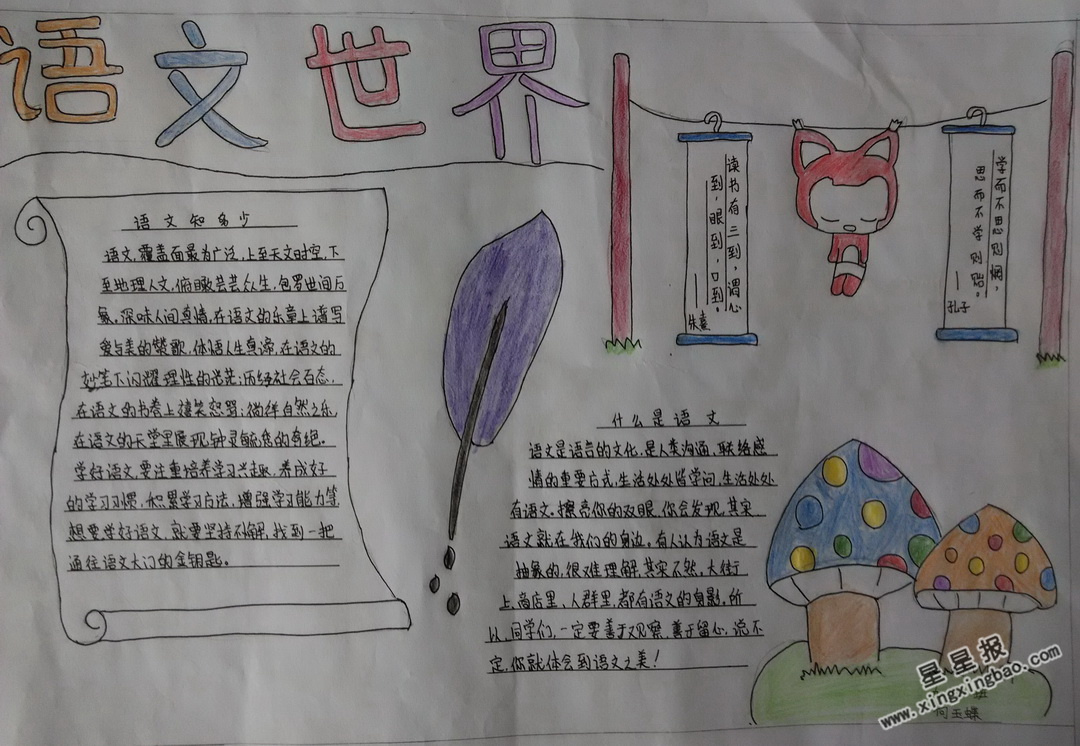 语文世界
语文知多少
语文,覆盖面最为广泛,上至天文时空,下
至地理人文,俯瞰芸芸众生,包罗世间万
象。深味人间真情,在语文的乐章上谱写
爱与美的赞歌,体悟人生真谛,在语文的
妙笔下闪耀理性的光芒;历经社会百态,
在语文的书卷上嬉笑怒骂;徜徉自然之乐,
在语文的天堂里展现钟灵毓秀的奇绝。
学好语文,要注重培养学习兴趣,养成好
的学习习惯,积累学习方法,增强学习能力等
想要学好语文,就要坚持不解,找到一把
通往语文大门的金钥匙。
读书有三到,谓心
到,眼到,口到。
——朱熹
学而不思则惘,
思而不学则殆。
——孔子
什么是语文
语文是语言的文化,是人类沟通、联络感
情的重要方式,生活处处皆学问,生活处处
有语文。擦亮你的双眼,你会发现,其实
语文就在我们的身边。有人认为语文是
抽象的,很难理解,其实不然。大街
上、商店里、人群里,都有语文的身影。所
以,同学们,一定要善于观察,善于留心,说不
定,你就体会到语文之美!
班
何玉蝶
星星报
www.xingxingbao.com